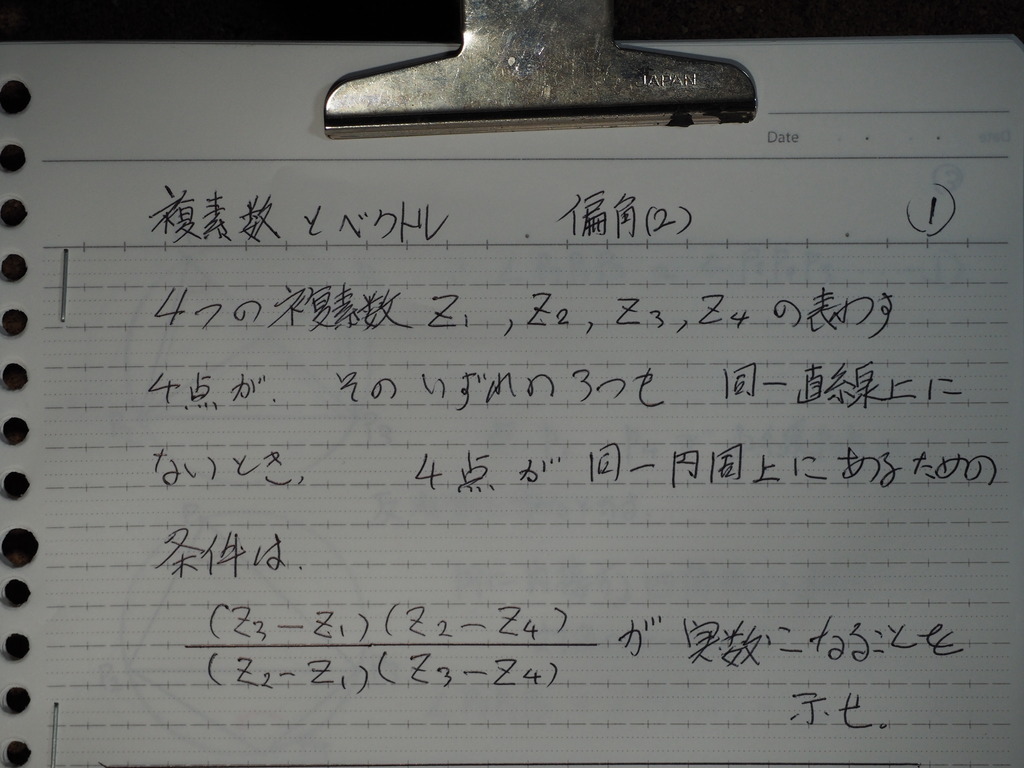 JAPAN
Date
複素数とベクトル 偏角(2) ①
4つの複素数 Z₁, Z₂, Z₃, Z₄ の表わす
4点が、そのいずれの3つも 同一直線上に
ないとき、 4点が同一円周上にあるための
条件は、
(Z₃-Z₁)(Z₂-Z₄)
(Z₂-Z₁)(Z₃-Z₄)
が実数になることを
示せ。